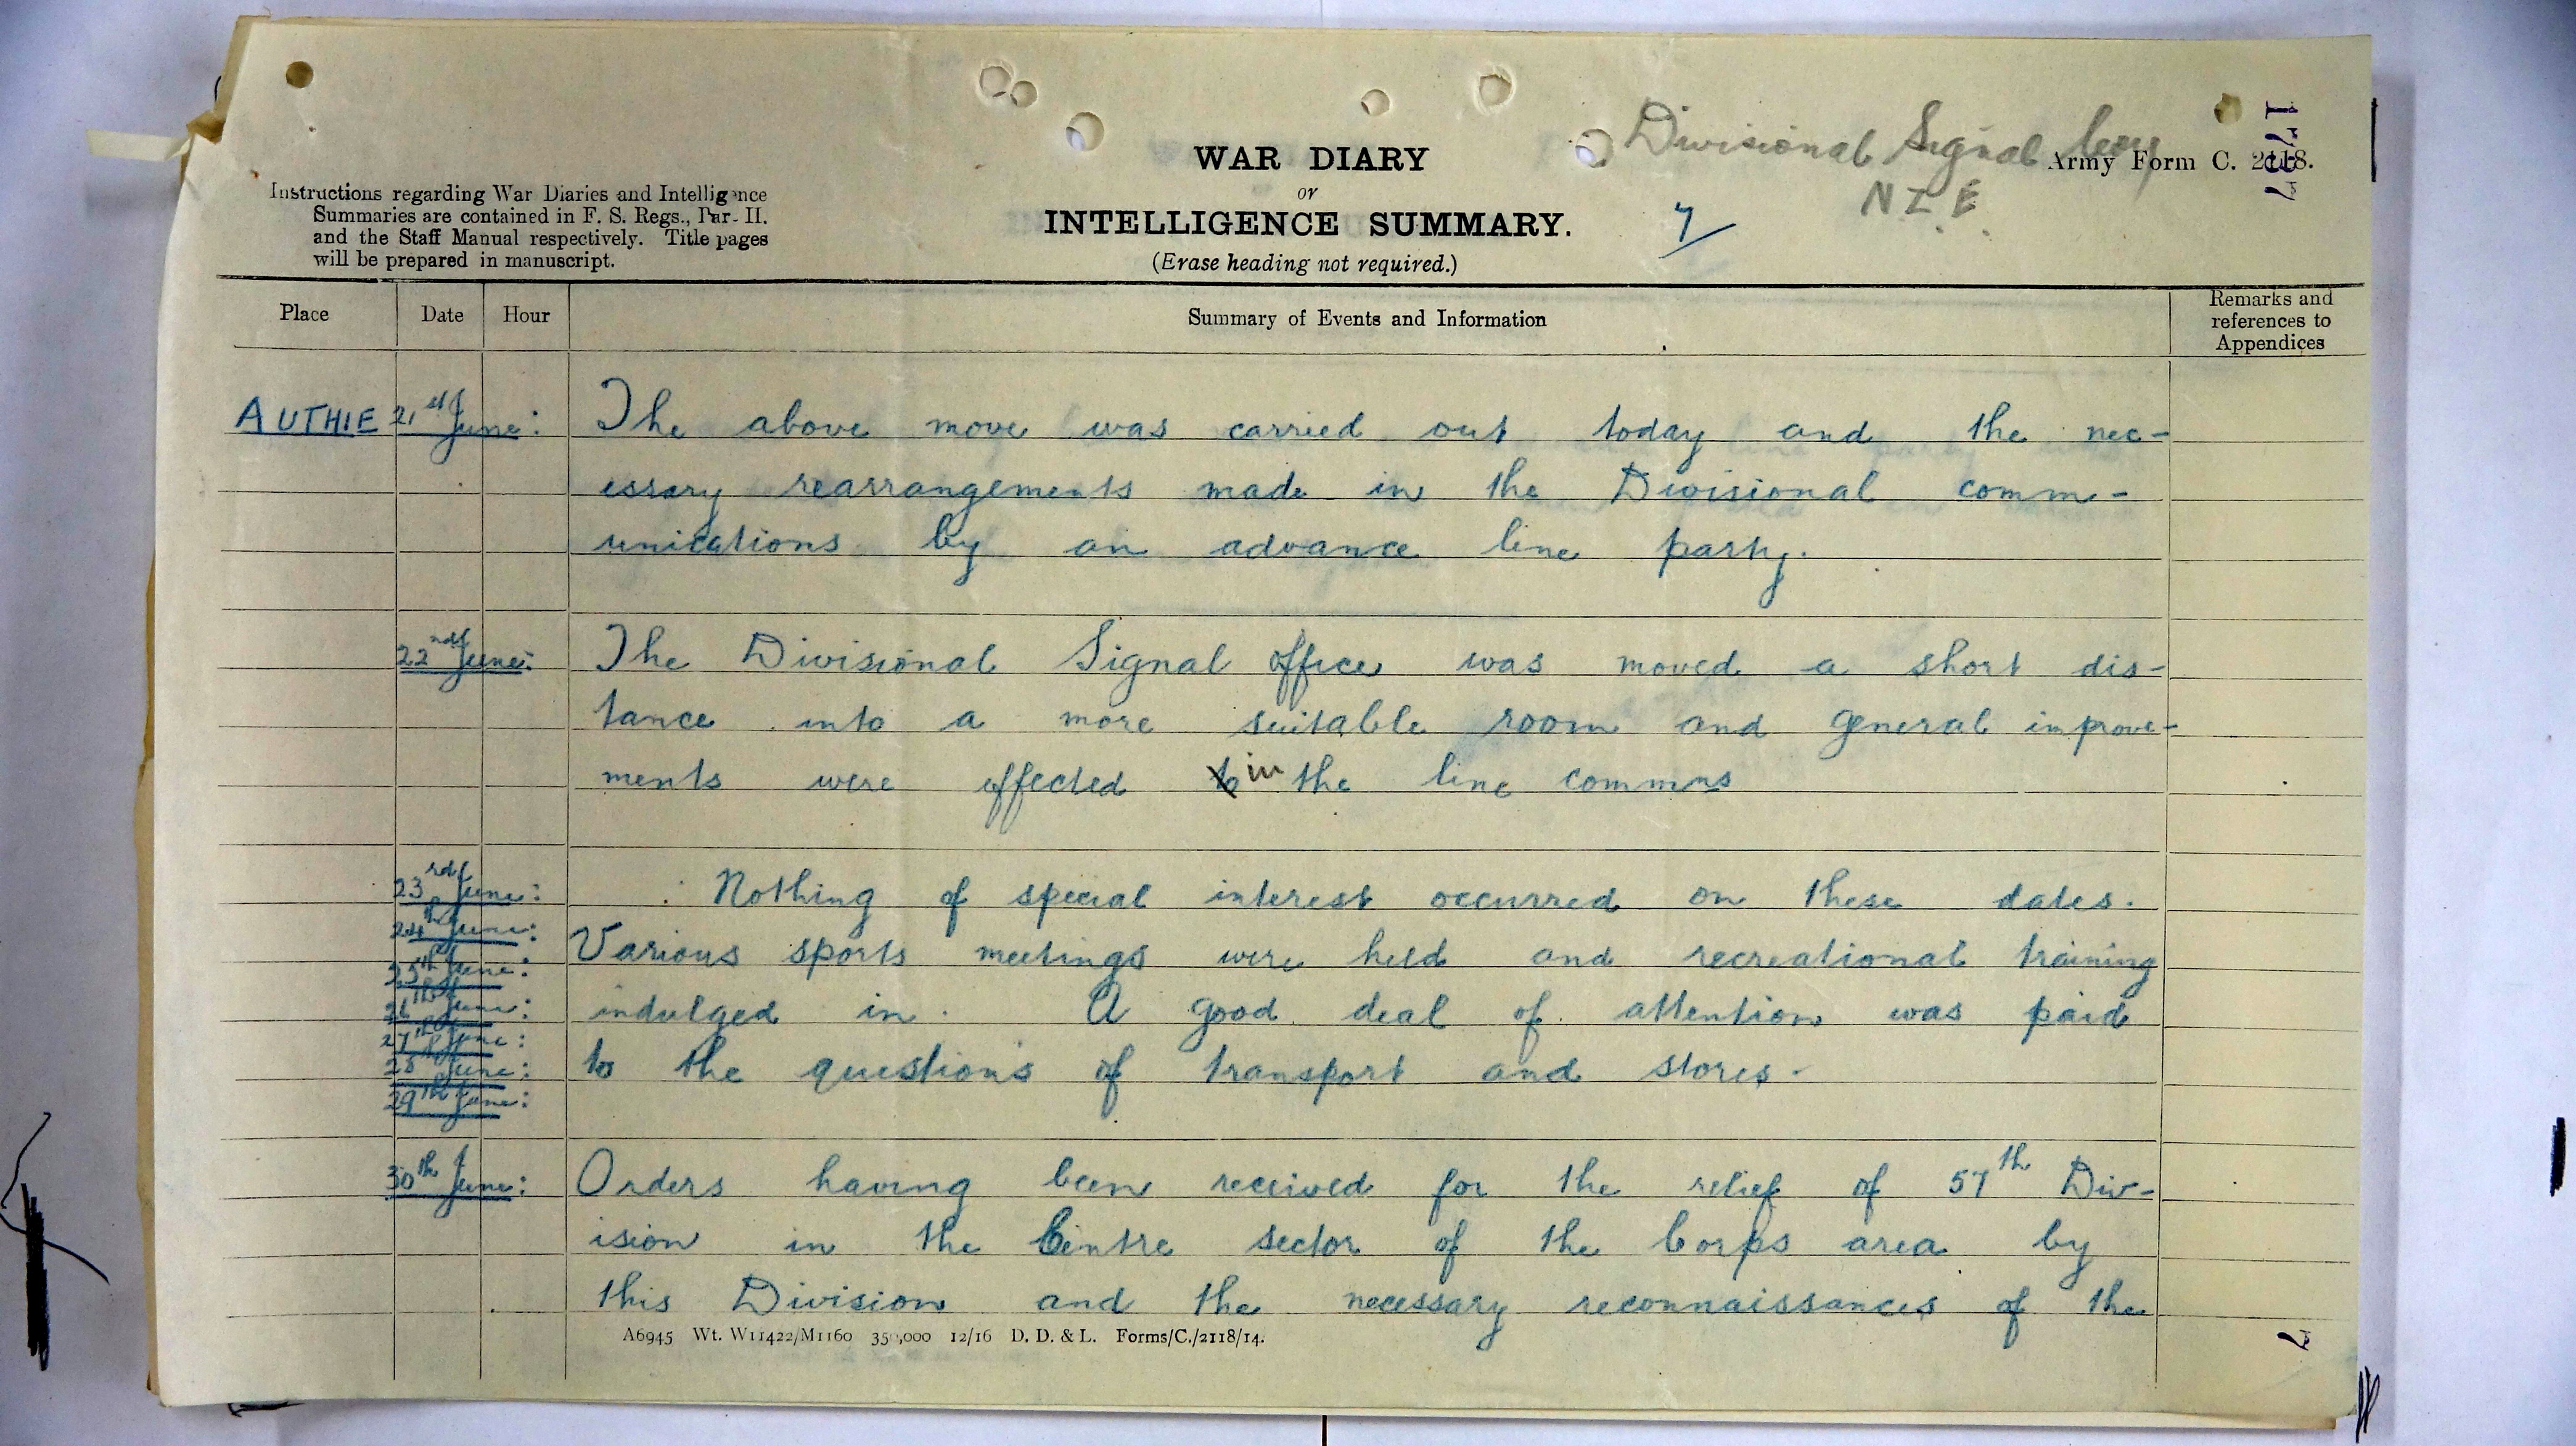 Divisional Signal Coy
N Z E
1737
WAR DIARY
or
INTELLIGENCE SUMMARY.
(Erase heading not required.)
7
Army Form C. 2118.
Instructions regarding War Diaries and Intelligence
Summaries are contained in F. S. Regs., Part II.
and the Staff Manual respectively. Title pages
will be prepared in manuscript.
Place Date Hour Summary of Events and Information Remarks and
references to
Appendices
AUTHIE 21st June: The above move was carried out today and the nec-
essary rearrangements made in the Divisional comm-
unications by an advance line party.
22nd June: The Divisional Signal office was moved a short dis-
tance into a more suitable room and general improve-
ments were effected to in the line commns
23rd June: Nothing of special interest occurred on these dates.
24th June: Various sports meetings were held and recreational training
25th June:
26th June: indulged in. A good deal of attention was paid
27th June:
28th June: to the questions of transport and stores.
29th June:
30th June: Orders having been received for the relief of 57th Div-
ision in the Centre sector of the Corps area by
this Division and the necessary reconnaissances of the
A6945 Wt. W11422/M1160 350,000 12/16 D. D. & L. Forms/C./2118/14.
7